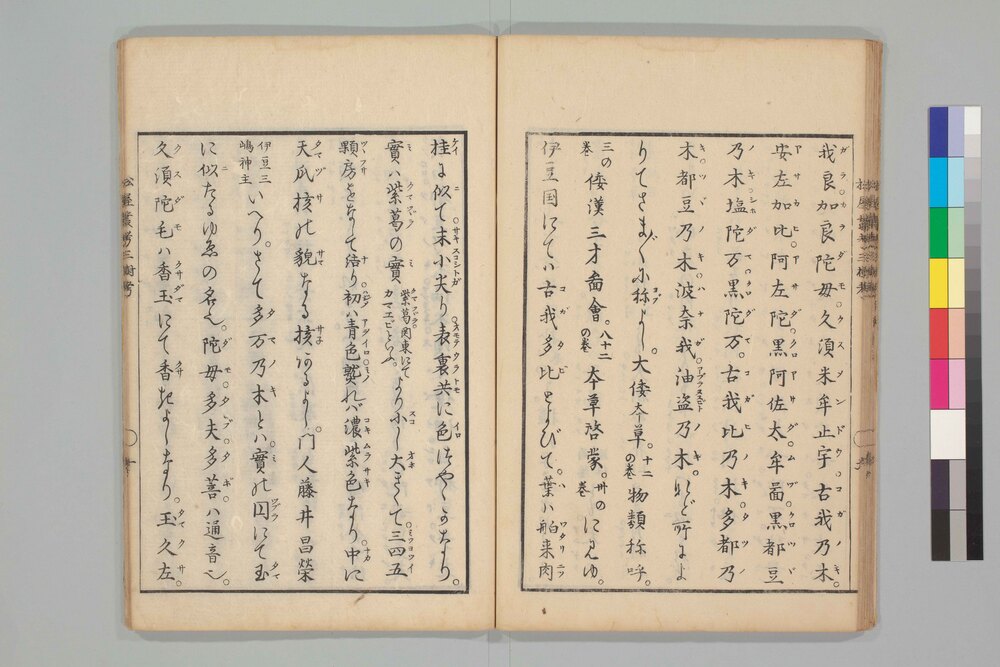 我良加良陀毋。久須米牟止宇古我乃木。
安左加比。阿左陀。黒阿佐太。牟啚黒都豆
乃木。塩陀万。黒陀万。古我比乃木。多都乃
木都豆乃木。波奈我。油盗乃木。など所によ
りてさま〴〵に称よし。大倭夲草。十二の巻 物類称呼。
三の巻 倭漢三才啚會。八十二の巻 夲草啓蒙。卅の巻 にみゆ。
伊豆国にてハ古我多比とよびて。葉ハ舶来肉
桂に似て末小尖り。表裏共に色つやゝかなり。
實ハ紫葛の實 紫葛。関東にてカマエビといふ。 より小し大きくて三四五
顆房をなして結り。初ハ青色。熟れバ濃紫色なり。中に
天瓜核の貌なる核あるよし。門人藤井昌榮
伊豆三嶋神主 いへり。さて多万乃木とハ。實の円にて玉
に似たるゆゑの名也。陀毋。多夫。多菩ハ通音也。
久須陀毛ハ香玉にて香きよしなり。玉久左。